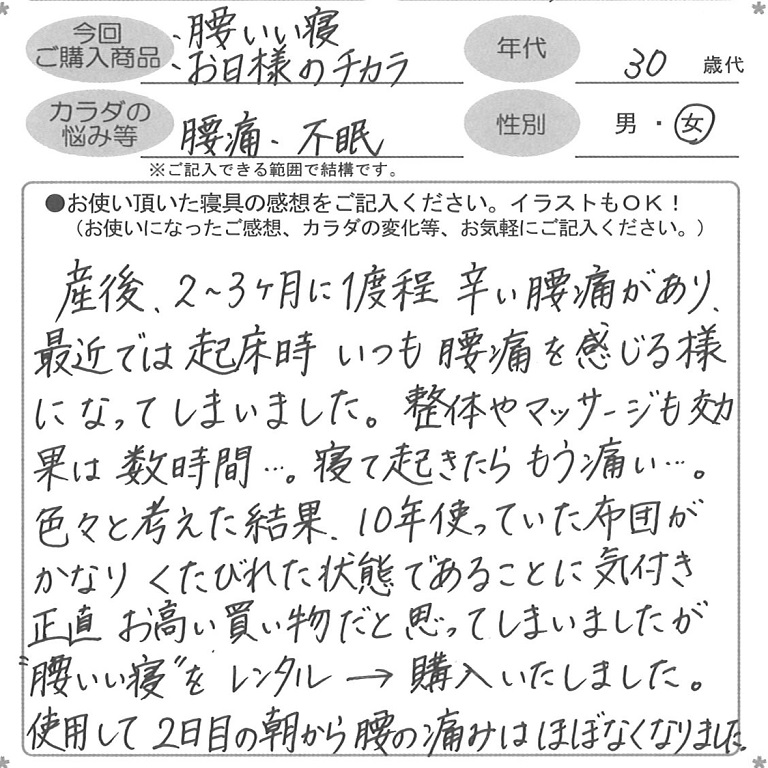 今回
ご購入商品
・腰いい寝
・お日様のチカラ
年代
30 歳代
カラダの
悩み等
腰痛・不眠
性別
男・女
※ご記入できる範囲で結構です。
●お使い頂いた寝具の感想をご記入ください。イラストもOK！
（お使いになったご感想、カラダの変化等、お気軽にご記入ください。）
産後、2～3ヶ月に1度程 辛い腰痛があり、
最近では起床時 いつも腰痛を感じる様
になってしまいました。整体やマッサージも効
果は数時間…。寝て起きたらもう痛い…。
色々と考えた結果、10年使っていた布団が
かなりくたびれた状態であることに気付き
正直 お高い買い物だと思ってしまいましたが
"腰いい寝"を レンタル → 購入いたしました。
使用して2日目の朝から腰の痛みはほぼなくなりました。